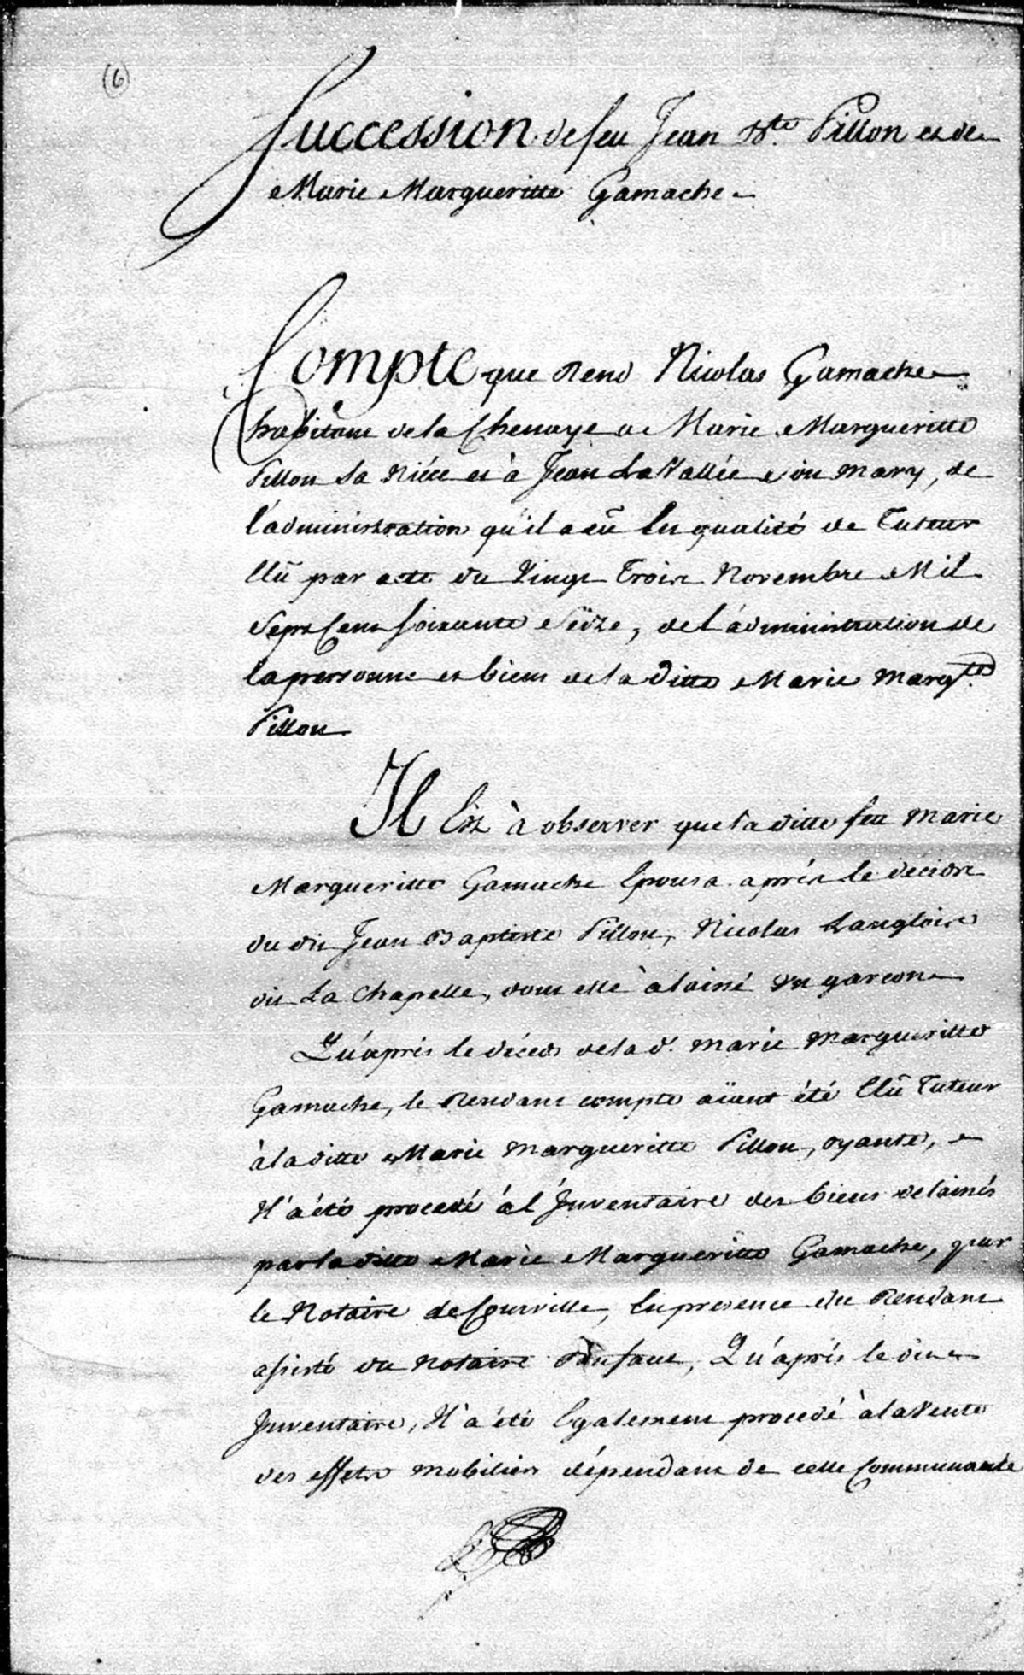 (6)
Succession de feu Jean Bte. Pillon et de
Marie Margueritte Gamache
Compte que Rend Nicolas Gamache
habitant de la Chenaye a Marie Margueritte
Pillon Sa Niéce et à Jean LaVallée son mary, de
l'administration qu'il a eû En qualité de Tuteur
Elû par acte du Vingt Trois Novembre Mil
Sept Cent Soixante Seize, de l'administration de
la personne et biens de la ditte Marie Margte.
Pillon
Il Est à observer que la ditte feu Marie
Margueritte Gamache Epousa après le décès
du dit Jean Baptiste Pillon, Nicolas Langlois
dit La Chapelle, dont elle à laissé un garçon
Qu'après le décès de la d. Marie Margueritte
Gamache, le Rendant compte aïant été Elû Tuteur
à la ditte Marie Margueritte Pillon, oyante,
Il a été procedé à l'Inventaire des biens delaissés
par la ditte Marie Margueritte Gamache, par
le Notaire de Courville, En presence du Rendant
assisté du Notaire Sanfaut, Qu'après le dit
Inventaire, Il a été Egalement procedé à la Vente
des effets mobiliers dépendant de cette Communauté